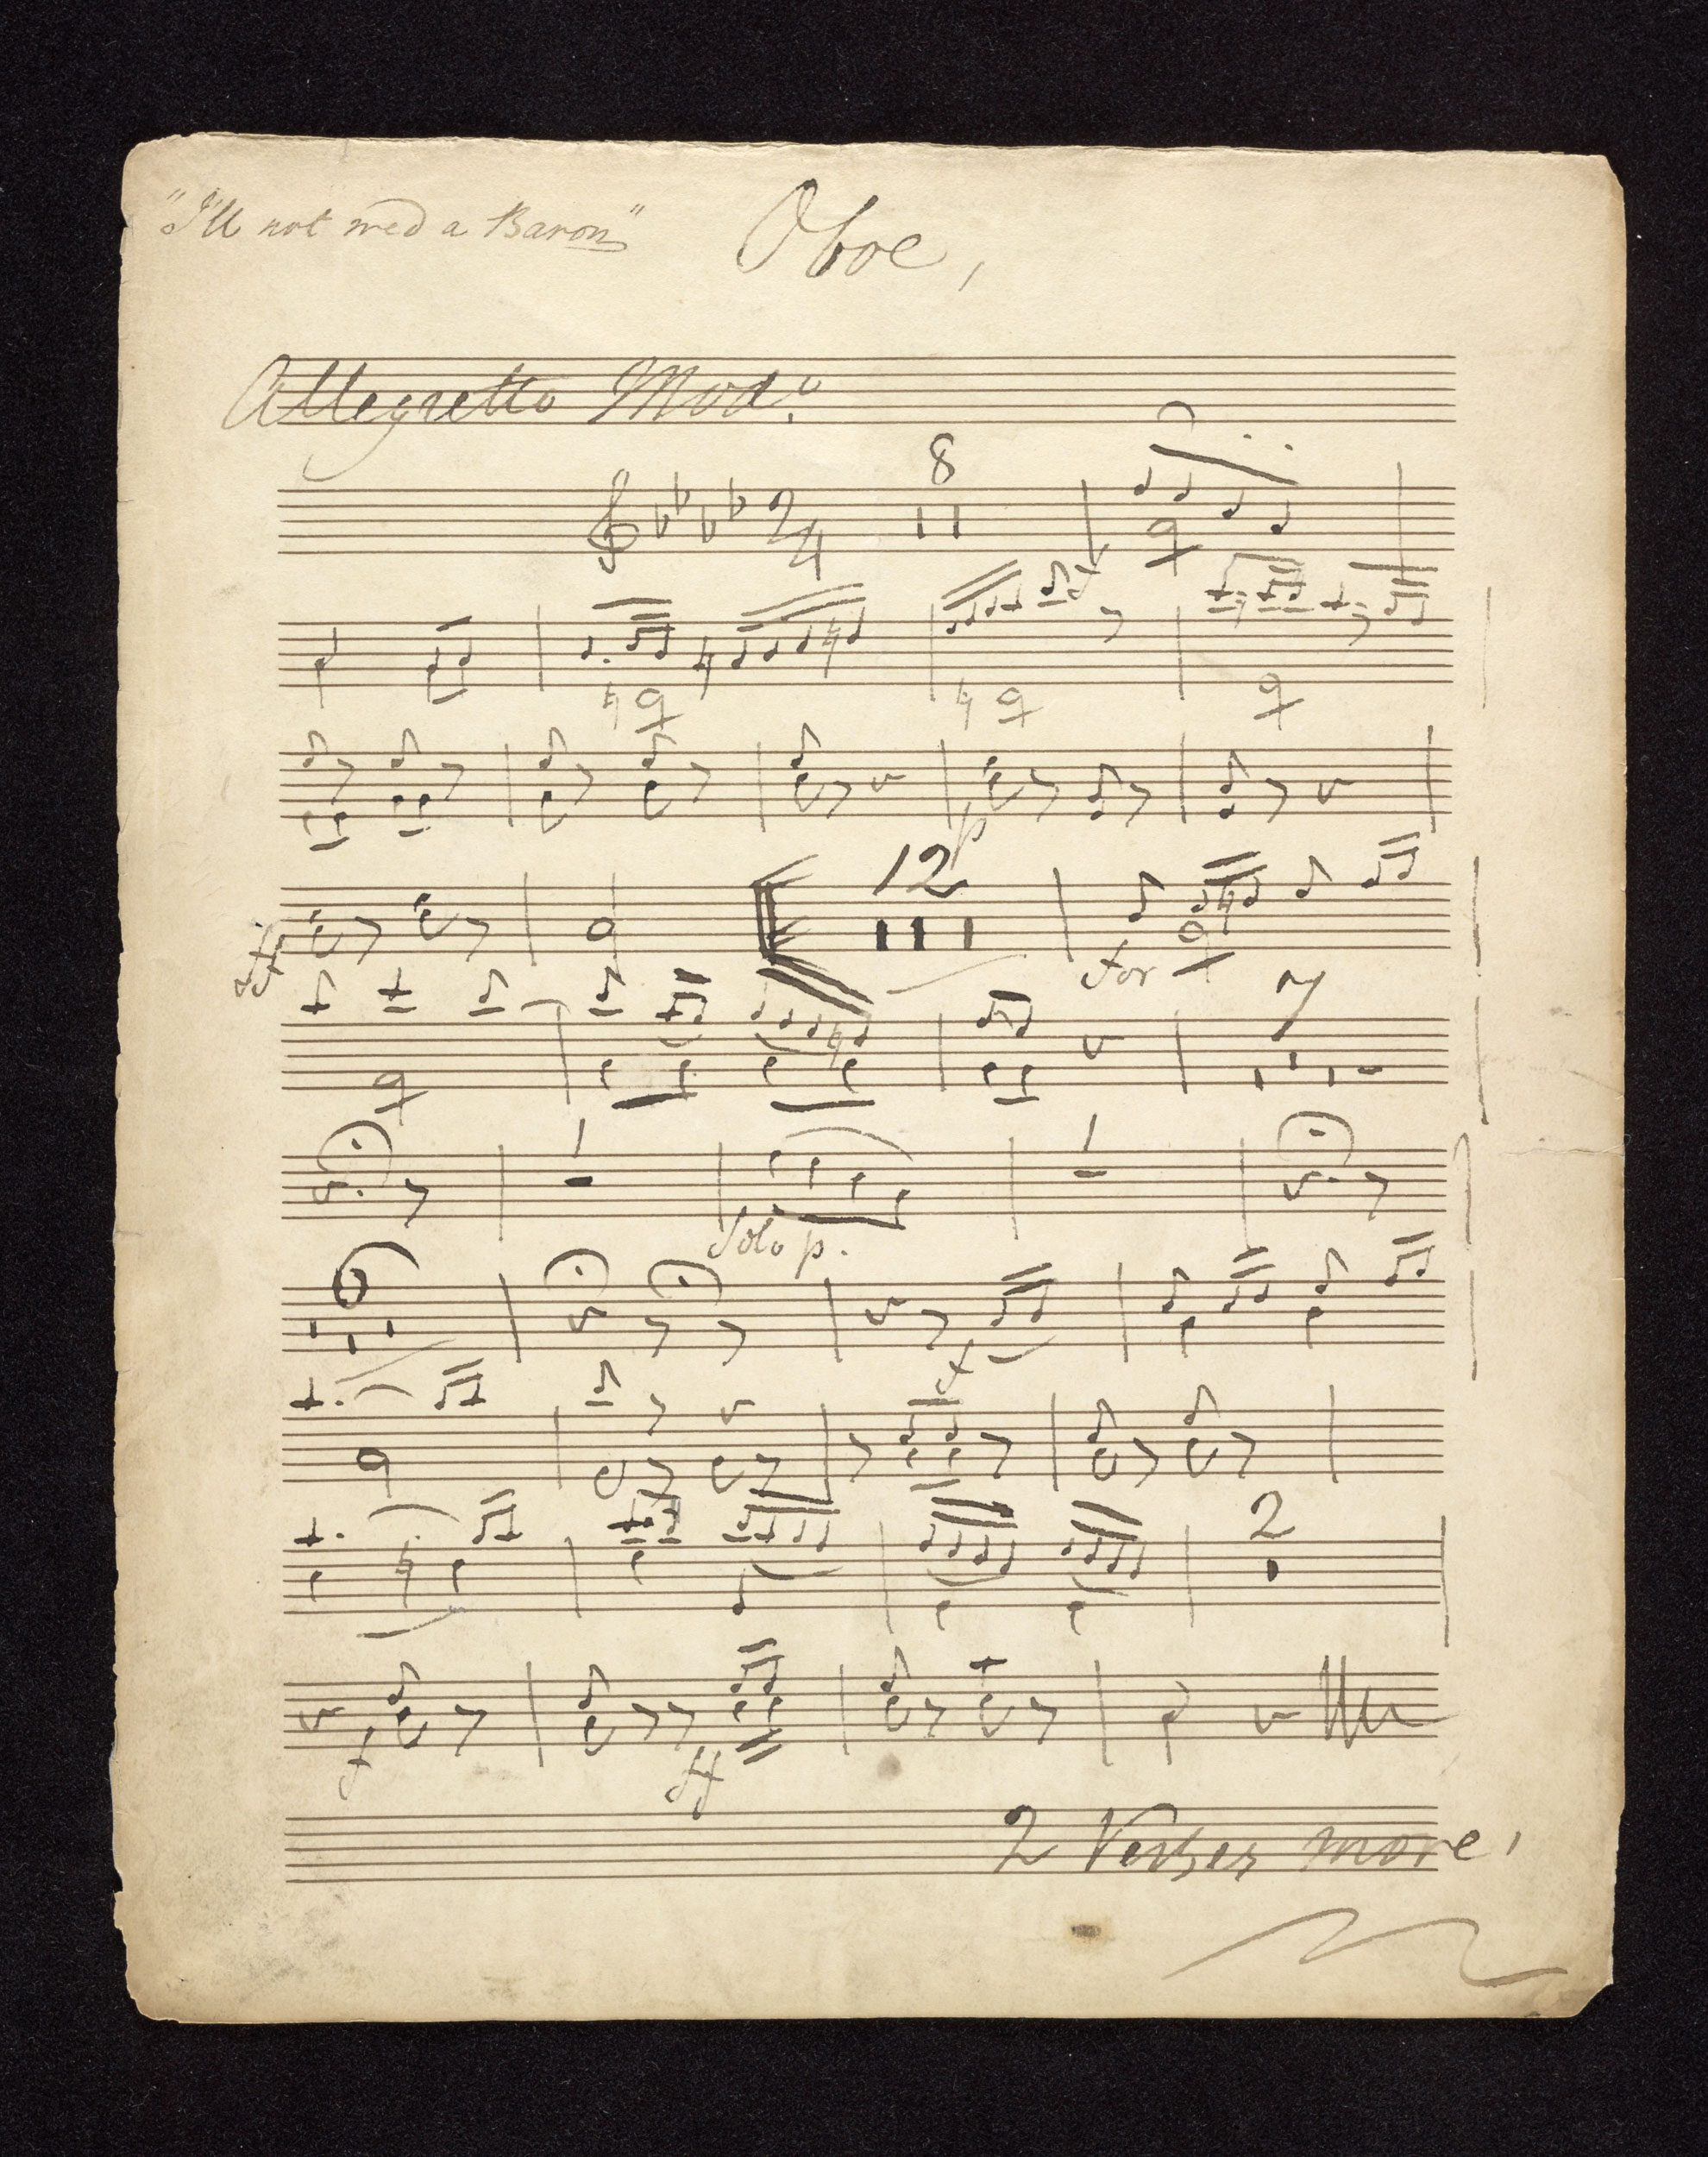 "I'll not wed a Baron"
Oboe,
Allegretto Modº.
8
2/4
f
p
12
ff
for
7
1 1
Solo p.
6
f
2
f
ff
2 Verses more,